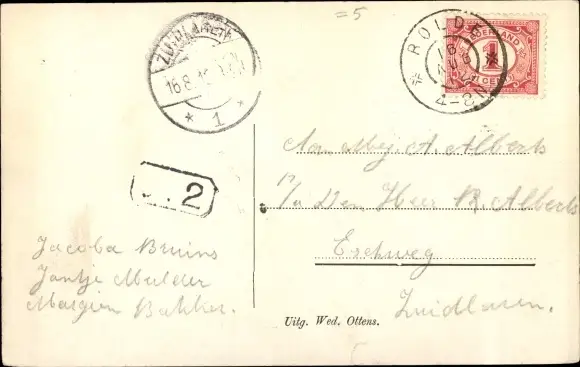 =5
ZUIDLAREN
16.8.
* 1 *
ROLDE
16
4-8N
NEDERLAND
1
CENT
2
Aan Mej. A. Alberts
p/a Den Heer R. Alberts
Eschweg
Zuidlaren.
Jacoba Bruins
Jantje Mulder
Margien Bakker.
Uitg. Wed. Ottens.